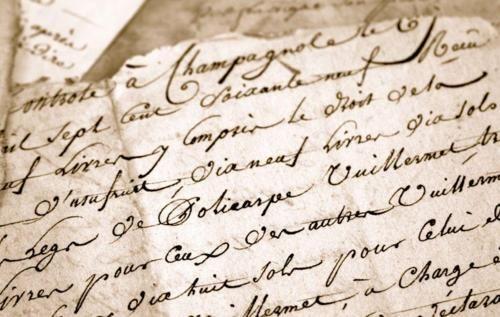 après
Dire
Controlé à Champagnole le
mil sept cent soixante neuf Reçu
neuf Livres y Compris le droit de la
d'usufruit, dix neuf Livres dix sols
legs de Policarpe Vuillermet
Livres pour ceux des autres Vuillerm
dix huit sols pour Celui
Vuillermet, à Charge
déclara